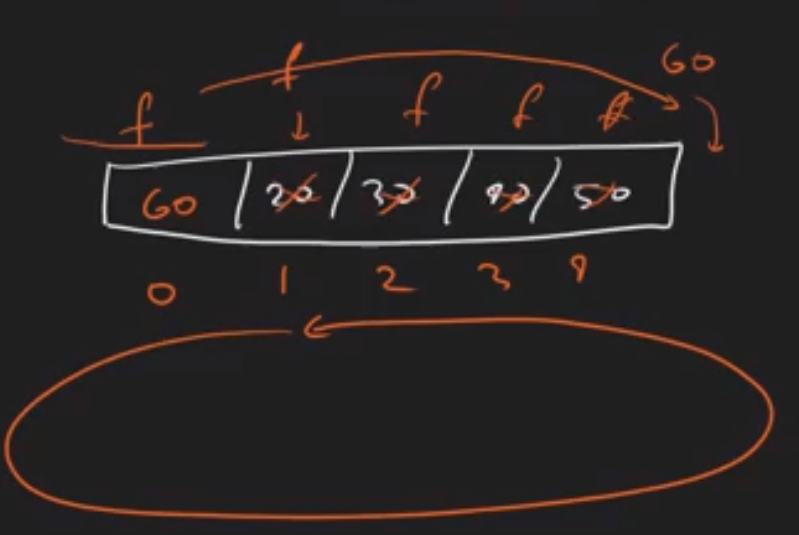 60
f f f f f
60 20 30 40 50
0 1 2 3 4